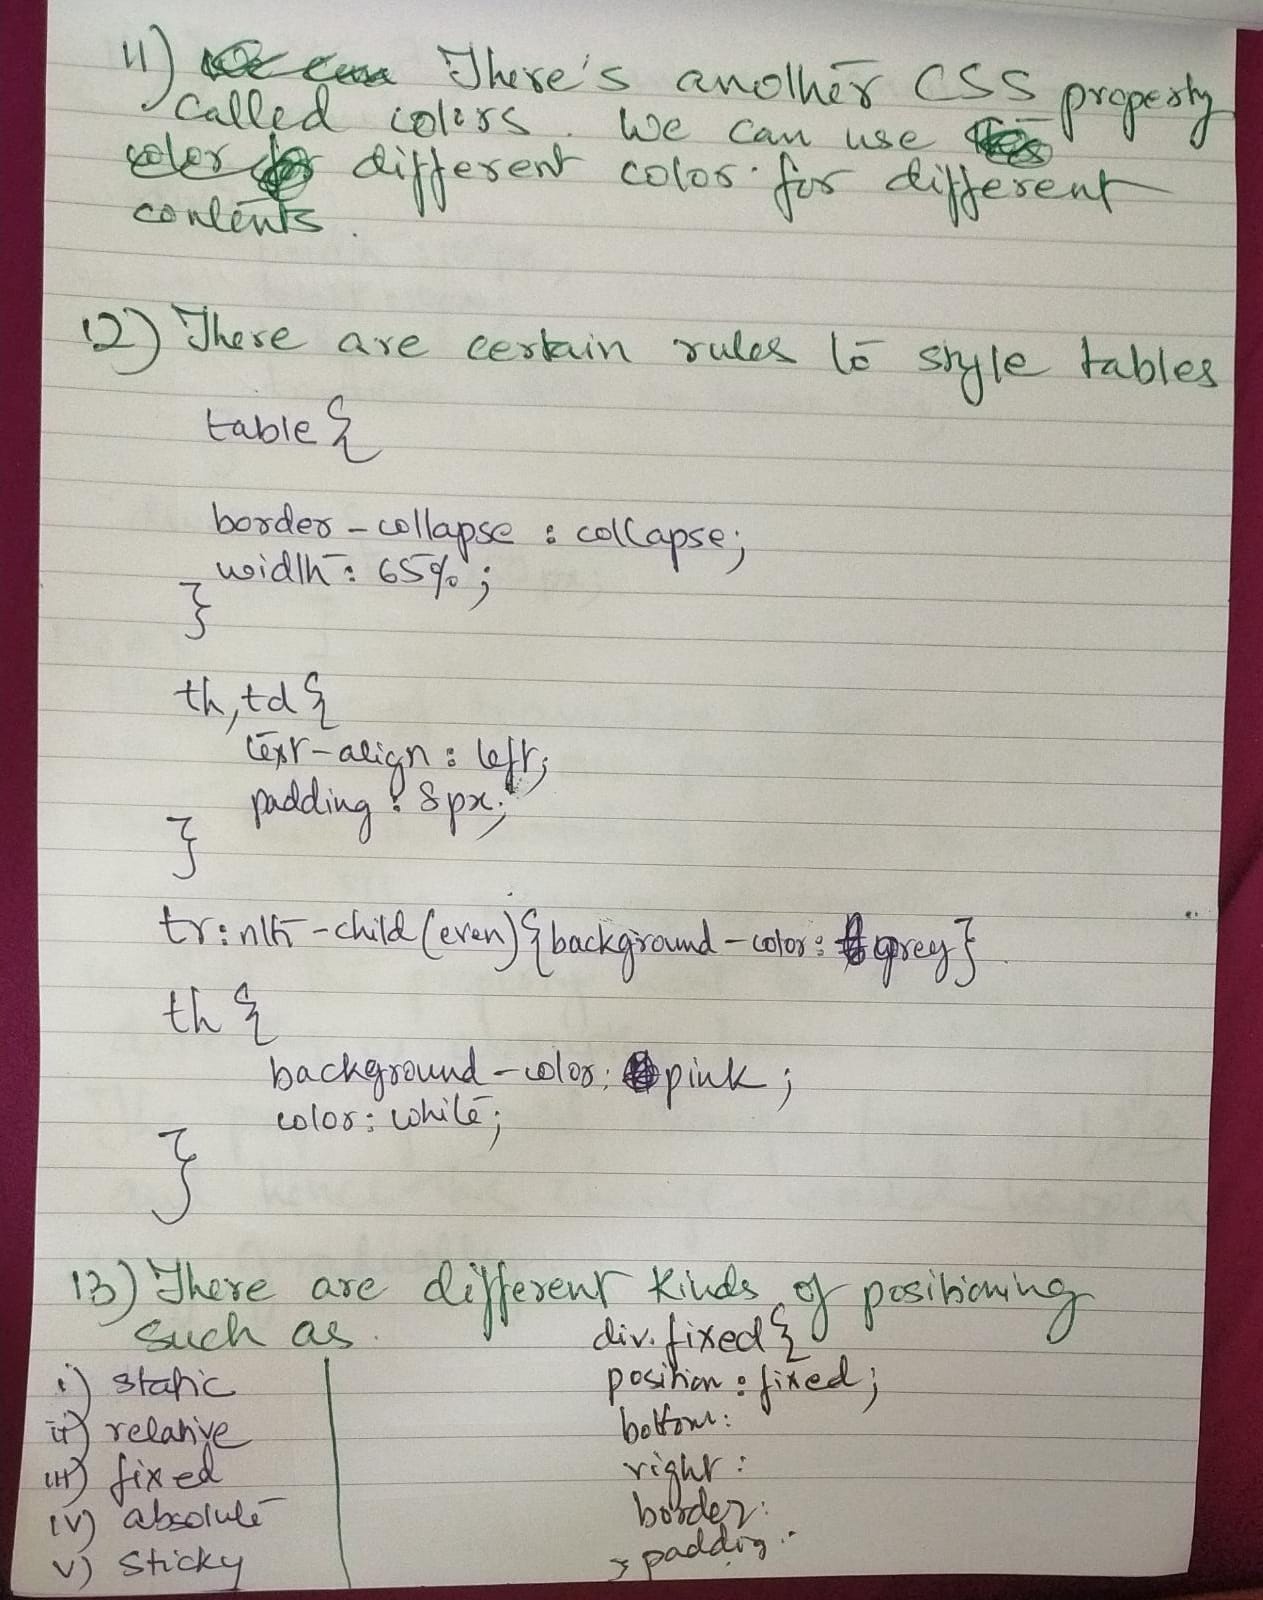 11) There's another CSS property
called colors. We can use
color different color for different
contents.
12) There are certain rules to style tables
table{
border-collapse : collapse;
width: 65%;
}
th,td{
text-align: left;
padding: 8px;
}
tr:nth-child(even){background-color: grey}
th {
background-color: pink;
color: white;
}
13) There are different kinds of positioning
such as.
i) static
ii) relative
iii) fixed
iv) absolute
v) sticky
div.fixed{
position: fixed;
bottom:
right:
border:
} padding: